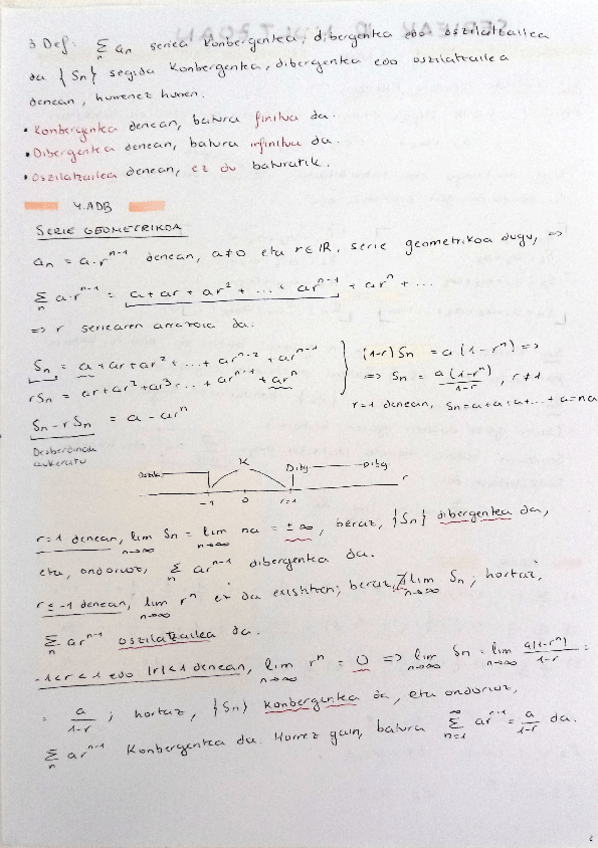 3 Def: Σₙ aₙ seriea konbergentea, dibergentea edo oszilatzailea
da {Sn} segida konbergentea, dibergentea edo oszilatzailea
denean, hurrenez hurren.
• Konbergentea denean, batura finitua da.
• Dibergentea denean, batura infinitua da.
• Oszilatzailea denean, ez du baturarik.
4.ADB
SERIE GEOMETRIKOA
aₙ = a·rⁿ⁻¹ denean, a≠0 eta r∈ℝ, serie geometrikoa dugu, =>
Σₙ a·rⁿ⁻¹ = a+ar+ar²+...+arⁿ⁻¹+arⁿ+...
=> r seriearen arrazoia da.
Sn = a+ar+ar²+...+arⁿ⁻²+arⁿ⁻¹
rSn = ar+ar²+ar³...+arⁿ⁻¹+arⁿ
Sn-rSn = a-arⁿ
(1-r)Sn = a(1-rⁿ) =>
=> Sn = a(1-rⁿ)/(1-r), r≠1
r=1 denean, Sn=a+a+a+...+a=na
Desberdinak
aukeratu
Oszil. K Dibg Dibg
-1 0 r=1 r
r=1 denean, lim n→∞ Sn = lim n→∞ na = ±∞, beraz, {Sn} dibergentea da,
eta, ondorioz, Σₙ arⁿ⁻¹ dibergentea da.
r≤-1 denean, lim n→∞ rⁿ ez da existitzen; beraz, ∄ lim n→∞ Sn; hortaz,
Σₙ arⁿ⁻¹ oszilatzailea da.
-1<r<1 edo |r|<1 denean, lim n→∞ rⁿ = 0 => lim n→∞ Sn = lim n→∞ a(1-rⁿ)/(1-r) =
= a/(1-r); hortaz, {Sn} konbergentea da, eta ondorioz,
Σₙ arⁿ⁻¹ konbergentea da. Horrez gain, batura Σ∞ₙ₌₁ arⁿ⁻¹ = a/(1-r) da.